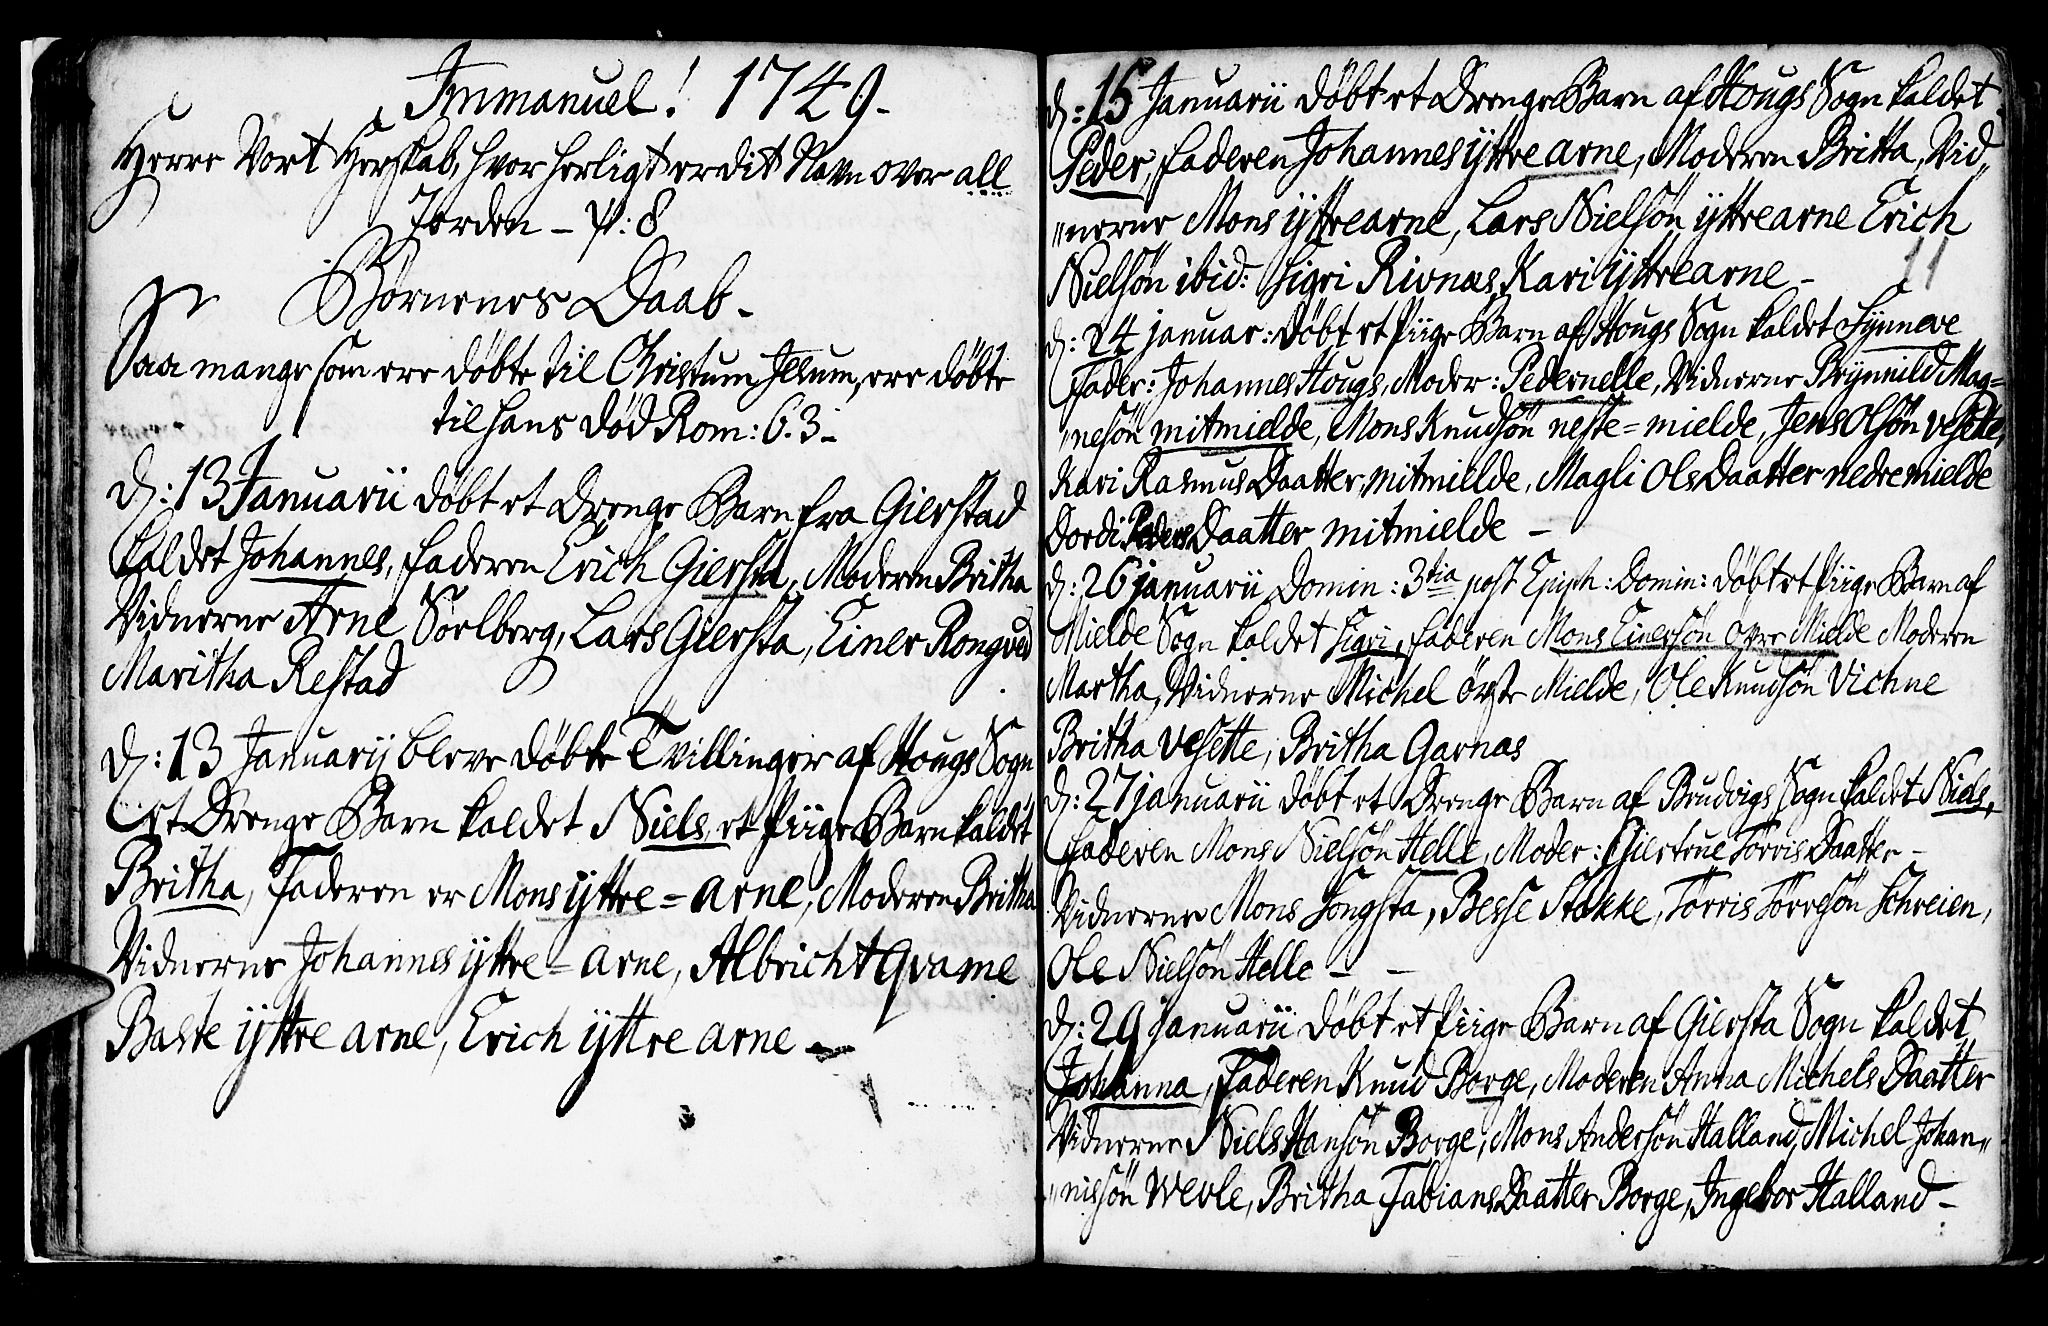 Immanuel! 1749.
Herre Vort Herskab, hvor herligt er dit Navn over all
Jorden – ψ: 8
Børnenes Daab.
Saa mange som ere døbte til Christum Jesum, ere døbte
til hans død Rom: 6.3.
D: 13 Januarii døbt et Drenge Barn fra Gierstad
kaldet Johannes, faderen Erich Giersta, Moderen Britha
Vidnerne Arne Soelberg, Lars Giersta, Einer Rongved
Maritha Restad
D: 13 Januarij bleve døbte Tvillinger af Hougs Sogn
et Drenge Barn kaldet Niels, et Piige Barn kaldet
Britha, Faderen er Mons ijttre=arne, Moderen Britha
Vidnerne Johannes ijttre=arne, Albricht Qvame
Baste ijttre arne, Erich ijttre arne
d: 15 Januarii døbt et Drenge Barn af Hougs Sogn kaldet
Peder, faderen Johannes ijttre arne, Moderen Britta, Vid„
„nerne Mons ijttrearne, Lars Nielsøn ijttrearne Erich
Nielsøn ibid: Sigri Rivnæs, Kari ijttrearne –
11
d: 24 januar: døbt et Piige Barn af Hougs Sogn kaldet Sÿnneve
Fader: Johannes Hougs, Moder: Pedernelle, Vidnerne Brÿnnild Mag=
„nesøn mitmielde, Mons Knudsøn neste=mielde, Jens Olsøn vesette,
Kari RasmusDaatter mitmielde, Magli OlsDaatter nedremielde
Dordi PedersDaatter mitmielde –
d: 26 januarii Domin: 3tia post Epiph: Domin: døbt et Piige Barn af
Mielde Sogn kaldet Sigri, faderen Mons Einersøn øvre Mielde Moderen
Martha, Vidnerne Michel øvste Mielde, Ole Knudsøn Vichne
Britha vesette, Britha Garnas
d: 27 januarii døbt et Drenge Barn af Brudvigs Sogn kaldet Niels,
Faderen Mons Nielsøn Helle, Moder: Giertrue TørrisDaatter –
Vidnerne Mons Songsta, Besse Stokke, Tørris Tørresøn Schreien,
Ole Nielsøn Helle – –
d: 29 januarii døbt et Piige Barn af Giersta Sogn kaldet
Johanna, Faderen Knud Borge, Moderen Anna MichelsDaatter
Vidnerne Niels Hansøn Borge, Mons Andersøn Halland, Michel Johan„
„nissøn Wevle, Britha FabiansDaatter Borge, Ingebor Halland –